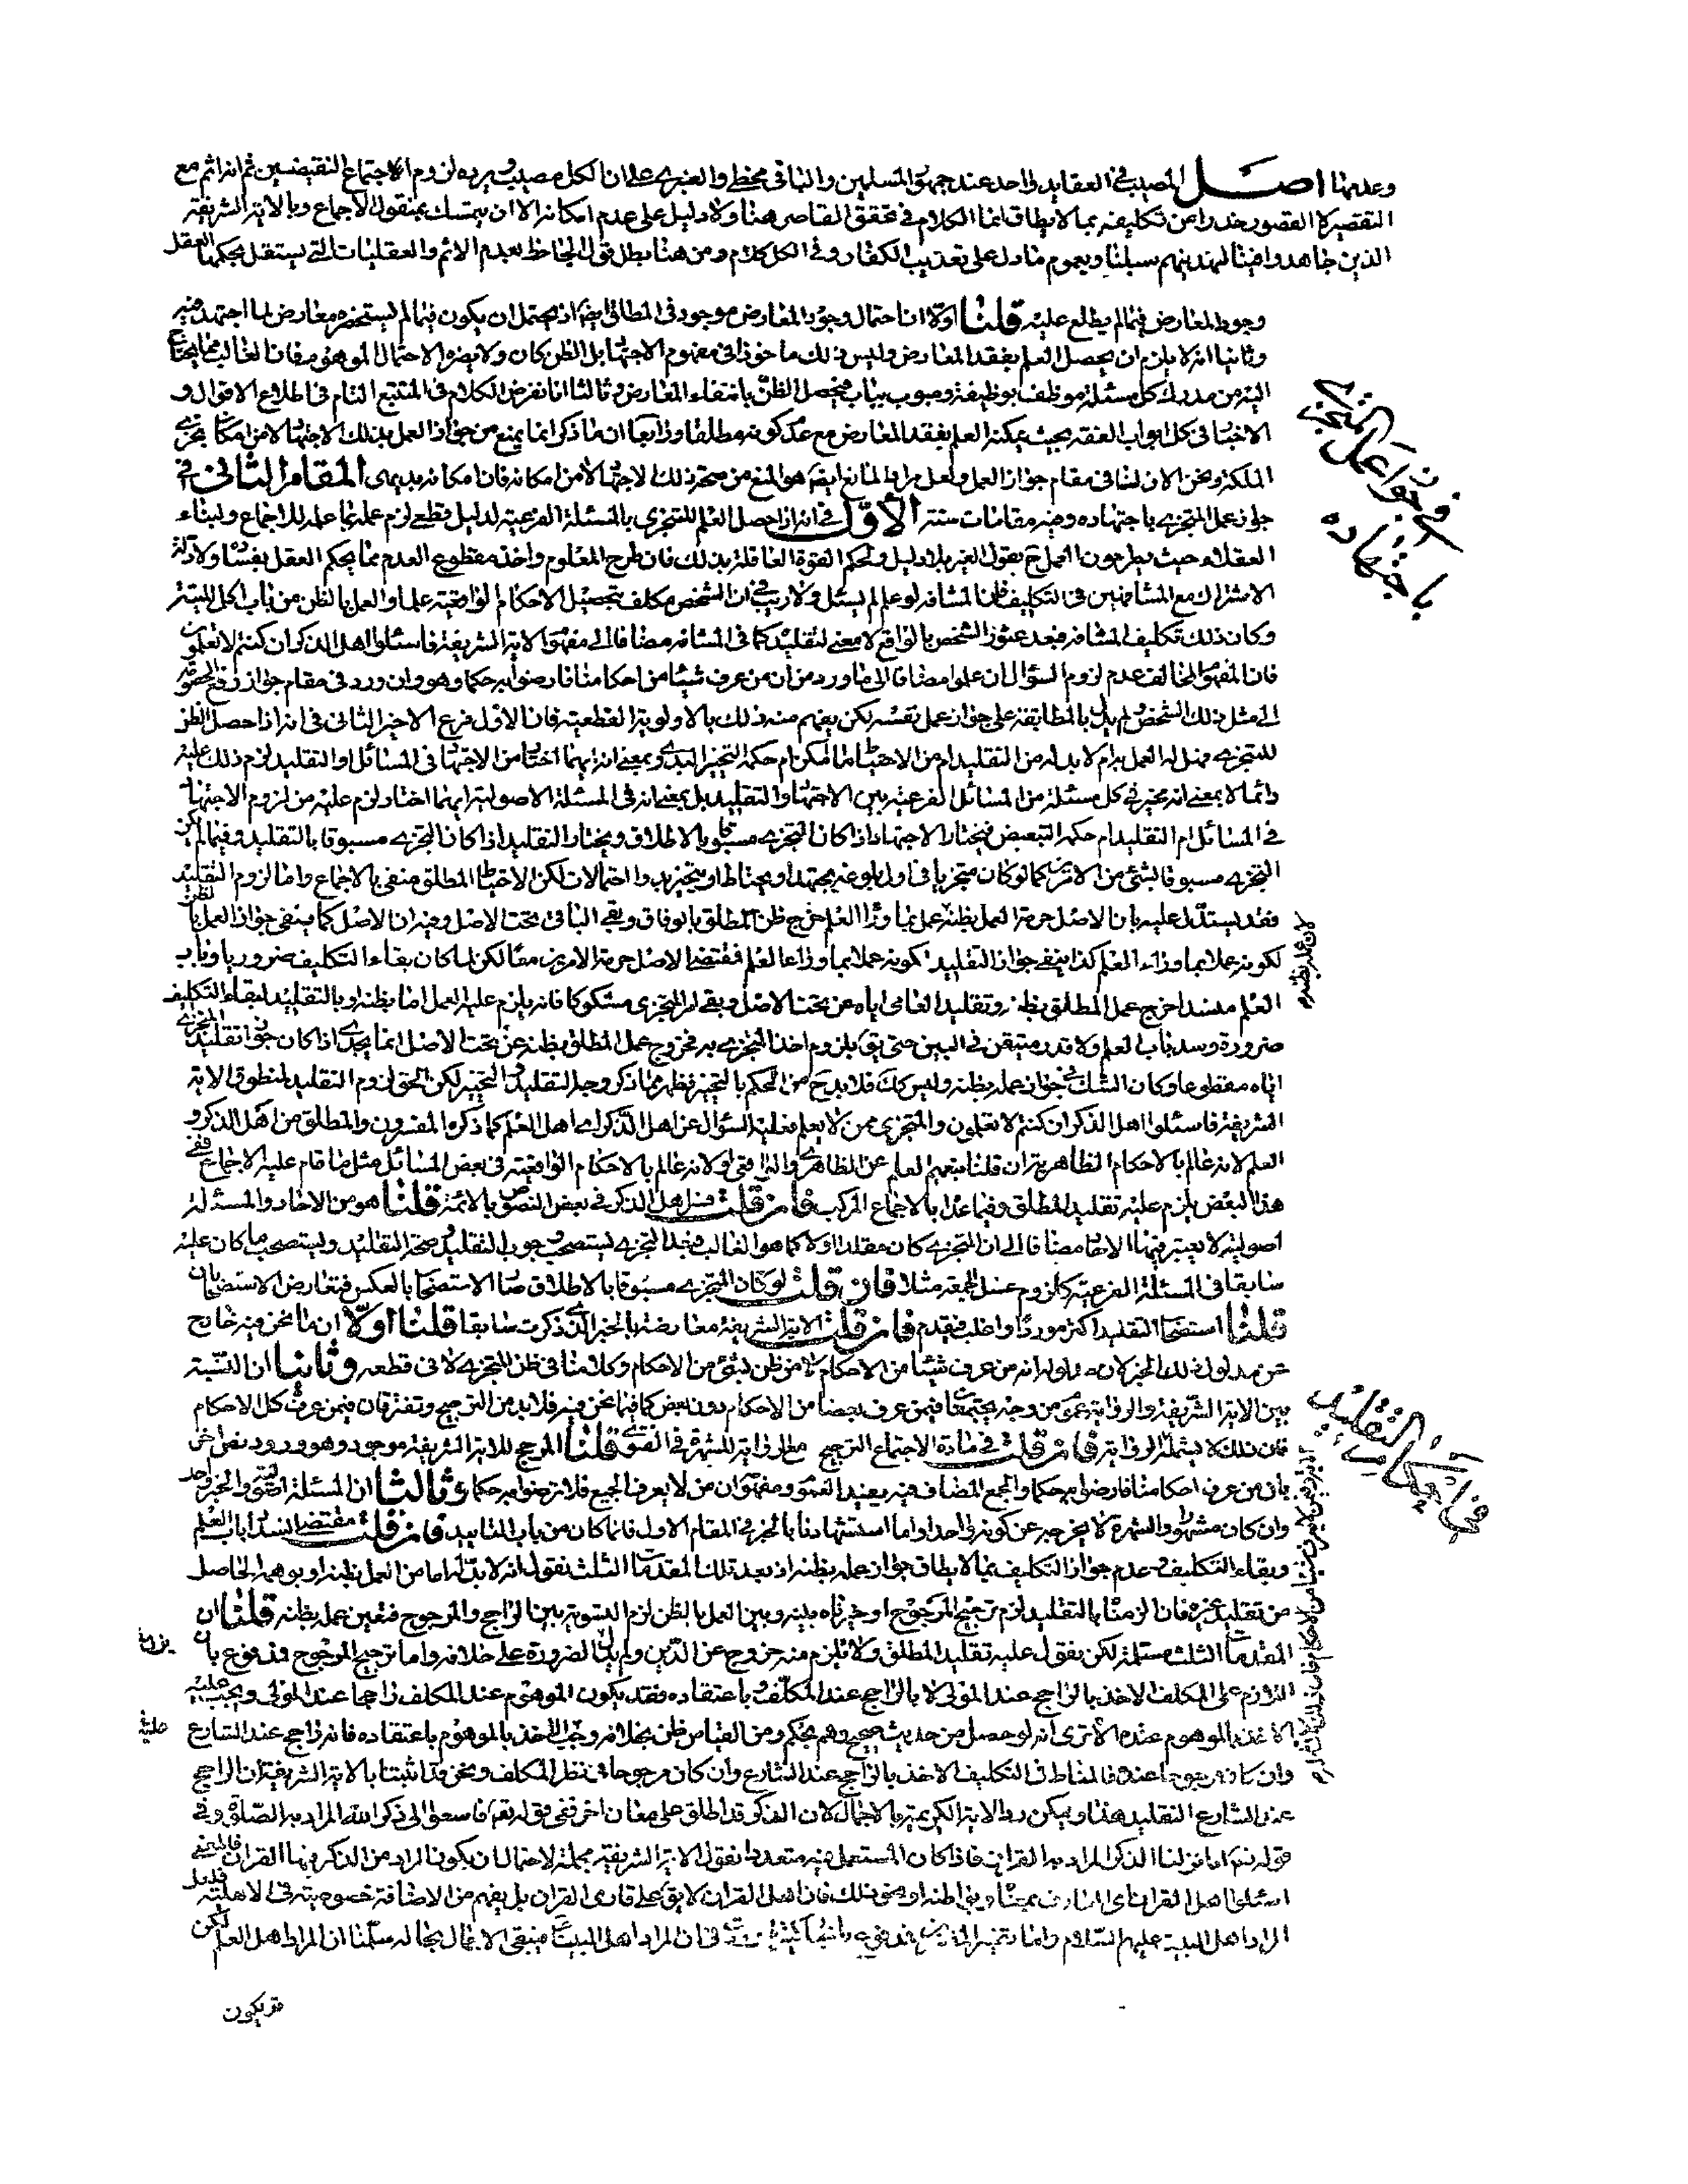 وعدمها اصل المصيب في العقايد واحد عند جمهور المسلمين والباقي مخطئ والعنبري على ان الكل مصيب ويرده لزوم الاجتماع النقيضين ثم انه اثم مع
التقصير لا القصور حذرا عن تكليفه بما لا يطاق انما الكلام في تحقق القاصر هنا ولا دليل على عدم امكانه الا ان يتمسك بمنقول الاجماع وبالاية الشريفة
الذين جاهدوا فينا لنهدينهم سبلنا وبعموم ما دل على تعذيب الكفار وفي الكل كلام ومن هنا بطل قول الجاحظ بعدم الاثم والعقليات التي يستقل بحكمها العقل
وجود المعارض فيما لم يطلع عليه قلنا اولا ان احتمال وجود المعارض موجود في المطلق ايضا اذ يحتمل ان يكون فيما لم يستحضره معارض لما اجتهد فيه
وثانيا انه لا يلزم ان يحصل العلم بفقد المعارض وليس ذلك ماخوذا في مفهوم الاجتهاد بل الظن كان ولا يضره الاحتمال الموهوم فان الغالب مما يحتاج
اليه من مدرك كل مسئلة موظف بوظيفة ومبوب بباب فيحصل الظن بانتفاء المعارض وثالثا انا نفرض الكلام في المتتبع التام في اطلاع الاقوال و
الاخبار في كل ابواب الفقه بحيث يمكنه العلم بفقد المعارض مع عدم كونه مطلقا ورابعا ان ما ذكر انما يمنع من جواز العمل بذلك الاجتهاد لا من امكان تجزي
الملكة ونحن الان لسنا في مقام جواز العمل ولعل مراد المانع ايضا هو المنع من صحة ذلك الاجتهاد لا من امكانه فان امكانه بديهي المقام الثاني في
جواز عمل المتجزي باجتهاده وفيه مقامات ستة الاول في انه اذا حصل العلم للمتجزي بالمسئلة الفرعية لدليل قطعي لزم عمله بما علمه للاجماع ولبناء
العقلاء حيث يطرحون العمل ح بقول الغير بلا دليل ولحكم القوة العاقلة بذلك فان طرح المعلوم واخذ مقطوع العدم مما يحكم العقل بفساده ولادلة
الاشتراك مع المشافهين في التكليف فان المشافه لو علم لم يسئل ولا ريب في ان الشخص مكلف بتحصيل الاحكام الواقعية علما والعمل بالظن من باب اكل الميتة
وكان ذلك تكليف المشافه فبعد عثور الشخص بالواقع لا معنى لتقليده كما في المشافه مضافا الى مفهوم الاية الشريفة فاسئلوا اهل الذكر ان كنتم لا تعلمون
فان المفهوم المخالف عدم لزوم السؤال ان علموا مضافا الى ما ورد من ان من عرف شيئا من احكامنا فارضوا به حكما وهو وان ورد في مقام جواز رفع الخصومة
الى مثل ذلك الشخص ولم يدل بالمطابقة على جواز عمل نفسه لكن يفهم منه ذلك بالاولوية القطعية فان الاول فرع الاخير الثاني في انه اذا حصل الظن
للمتجزي فهل له العمل به ام لا بد له من التقليد ام من الاحتياط ما امكن ام حكمه التخيير البدوي بمعنى انه ايهما اختار من الاجتهاد في المسائل او التقليد لزم ذلك عليه
دائما لا بمعنى انه مخير في كل مسئلة من المسائل الفرعية بين الاجتهاد والتقليد بل بمعنى انه في المسئلة الاصولية ايهما اختار لزم عليه من لزوم الاجتهاد
في المسائل ام التقليد ام حكمه التبعيض فيختار الاجتهاد اذا كان المتجزي مسبوقا بالاطلاق ويختار التقليد اذا كان المتجزي مسبوقا بالتقليد وفيما لم يكن
المتجزي مسبوقا بشئ من الامرين كما لو كان متجزيا في اول بلوغه يجتهد او يحتاط او يتخير بدوا احتمالات لكن الاحتياط المطلق منفي بالاجماع واما لزوم التقليد
فقد يستدل عليه بان الاصل حرمة العمل بظنه عمل بما وراء العلم خرج ظن المطلق بالوفاق وبقي الباقي تحت الاصل وفيه ان الاصل كما ينفي جواز العمل بالظن
لكونه عملا بما وراء العلم كذا ينفي جواز التقليد لكونه عملا بما وراء العلم فمقتضى الاصل حرمة الامرين معا لكن لما كان بقاء التكليف ضروريا وباب
العلم منسدا خرج عمل المطلق بظنه وتقليد العامي اياه عن تحت الاصل وبقي امر المتجزي مشكوكا فانه يلزم عليه العمل اما بظنه او بالتقليد لبقاء التكليف
ضرورة وسد باب العلم ولا قدر متيقن في البين حتى يق بلزوم اخذ المتجزي به فخروج عمل المطلق بظنه عن تحت الاصل انما يجدي اذا كان جواز تقليد المتجزي
اياه مقطوعا وكان الشك في جواز عمله بظنه وليس كك فلا بد ح من الحكم بالتخيير فظهر مما ذكر وجه التقليد والتخيير لكن الحق لزوم التقليد لمنطوق الاية
الشريفة فاسئلوا اهل الذكر ان كنتم لا تعلمون والمتجزي ممن لا يعلم فعليه السؤال عن اهل الذكر اي اهل العلم كما ذكره المفسرون والمطلق من اهل الذكر و
العلم لانه عالم بالاحكام الظاهرية ان قلنا بتعميم العلم عن الظاهري والواقعي او لانه عالم بالاحكام الواقعية في بعض المسائل مثل ما قام عليه الاجماع ففي
هذا البعض يلزم عليه تقليد المطلق وفيما عداه بالاجماع المركب فان قلت فسر اهل الذكر في بعض النصوص بالائمة قلنا هو من الاحاد والمسئلة
اصولية لا يعتبر فيها الاحاد مضافا الى ان المتجزي كان مقلدا اولا كما هو الغالب فبعد التجزي يستصحب وجوب التقليد وصحة التقليد ويستصحب ما كان عليه
سابقا في المسئلة الفرعية كلزوم غسل الجمعة مثلا فان قلت لو كان المتجزي مسبوقا بالاطلاق صار الاستصحاب بالعكس فتعارض الاستصحابان
قلنا استصحاب التقليد اكثر موردا واغلب فيقدم فان قلت الاية الشريفة معارضة بالخبر الذي ذكرت سابقا قلنا اولا ان ما نحن فيه خارج
عن مدلول ذلك الخبر لان مدلوله انه من عرف شيئا من الاحكام لا من ظن بشئ من الاحكام وكلامنا في ظن المتجزي لا في قطعه وثانيا ان النسبة
بين الاية الشريفة والرواية عموم من وجه يجتمعان فيمن عرف بعضا من الاحكام دون بعض كما فيما نحن فيه فلا بد من الترجيح وتفترقان فيمن عرف كل الاحكام
فان ذلك لا يشمله الرواية فان قلت في مادة الاجتماع الترجيح مع الرواية للشهرة في الفتوى قلنا المرجح للاية الشريفة موجود وهو ورود نص اخر
بان من عرف احكامنا فارضوا به حكما والجمع المضاف فيه يفيد العموم ومفهومه ان من لا يعرف الجميع فلا ترضوا به حكما وثالثا ان المسئلة اصولية والخبر واحد
وان كان مشهورا والشهرة لا يخرجه عن كونه واحدا واما استشهادنا بالخبر في المقام الاول فانما كان من باب التاييد فان قلت مقتضى انسداد باب العلم
وبقاء التكليف وعدم جواز التكليف بما لا يطاق جواز عمله بظنه اذ بعد تلك المقدمات الثلث نقول انه لا بد له اما من العمل بظنه او بوهمه الحاصل
من تقليد غيره فان الزمناه بالتقليد لزم ترجيح المرجوح او خيرناه بينه وبين العمل بالظن لزم التسوية بين الراجح والمرجوح فتعين عمله بظنه قلنا ان
المقدمات الثلث مسلمة لكن نقول عليه تقليد المطلق ولا يلزم منه خروج عن الدين ولم يدل الضرورة على خلافه واما ترجيح المرجوح فمدفوع بان
اللازم على المكلف الاخذ بالراجح عند المولى لا بالراجح عند المكلف باعتقاده فقد يكون الموهوم عند المكلف راجحا عند المولى ويجب عليه
الاخذ بالموهوم عنده الا ترى انه لو حصل من حديث صحيح وهم بحكم ومن القياس ظن بخلافه وجب الاخذ بالموهوم باعتقاده فانه راجح عند الشارع
وان كان مرجوحا عنده فالمناط في التكليف الاخذ بالراجح عند الشارع وان كان مرجوحا في نظر المكلف ونحن قد اثبتنا بالاية الشريفة ان الراجح
عند الشارع التقليد هذا ويمكن رد الاية الكريمة بالاجمال لان الذكر قد اطلق على معان اخر ففي قوله تعالى فاسعوا الى ذكر الله المراد به الصلوة وفي
قوله تعم انا نزلنا الذكر المراد به القران فاذا كان المستعمل فيه متعددا نقول الاية الشريفة مجملة لاحتمال ان يكون المراد من الذكر فيها القران فالمعنى
اسئلوا اهل القران اي العارف بمعناه وبواطنه ونحو ذلك فان اهل القران لا يق على قارئ القران بل يفهم من الاضافة خصوصية في الاهلية فلعل
المراد اهل البيت عليهم السلام فان المراد اهل البيت فيبقى الاجمال بحاله سلمنا ان المراد اهل العلم لكن
في جواز عمل المتجزي
باجتهاده
في احكام التقليد
لان عمله بظنه
فريكون